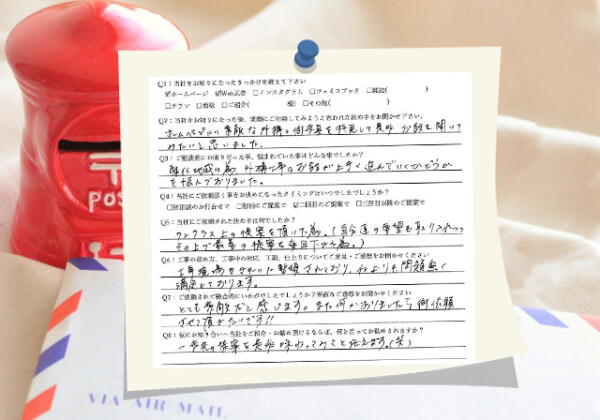 Q1：当社をお知りになったきっかけを教えて下さい
☑ホームページ ☑Web広告 □インスタグラム □フェイスブック □雑誌( )
□チラシ □看板 □ご紹介( 様) □その他( )
Q2：当社をお知りになった後、実際にご相談してみようと思われた決め手をお聞かせ下さい。
ホームページで素敵な外構の御写真を拝見して是非お話を聞いて
みたいと思いました。
Q3：ご相談前にお困りだった事、悩まれていた事はどんな事でしたか？
の為、外構工事のお話が上手く進んでいくかどうか
を悩んでおりました。
Q4：当社にご依頼頂く事をお決めになったタイミングはいつでしたでしょうか？
□初回のお打合せで □初回のご提案で ☑二回目のご提案で □三回目以降のご提案で
Q5：当社にご依頼された決め手は何でしたか？
ワンクラス上の提案を頂いた為。(自分達の要望も取り入れつつ
その上で最善の提案を毎回下さる為。)
Q6：工事の進め方、工事中の対応、工期、仕上りについてご意見・ご感想をお聞かせください
工事現場もきれいに整頓されており、仕上りも問題無く
満足しております。
Q7：ご依頼されて総合的にいかがでしたでしょうか？率直なご感想をお聞かせください
とても素敵だと感じます。また何かありましたら御依頼
させて頂きたいです!!
Q8：仮にお知り合いへ当社をご紹介・お勧め頂けるならば、何と言ってお勧めされますか？
一歩先の提案を是非味わってみてと伝えます。(笑)
〒
POST
VIA AIR MAIL